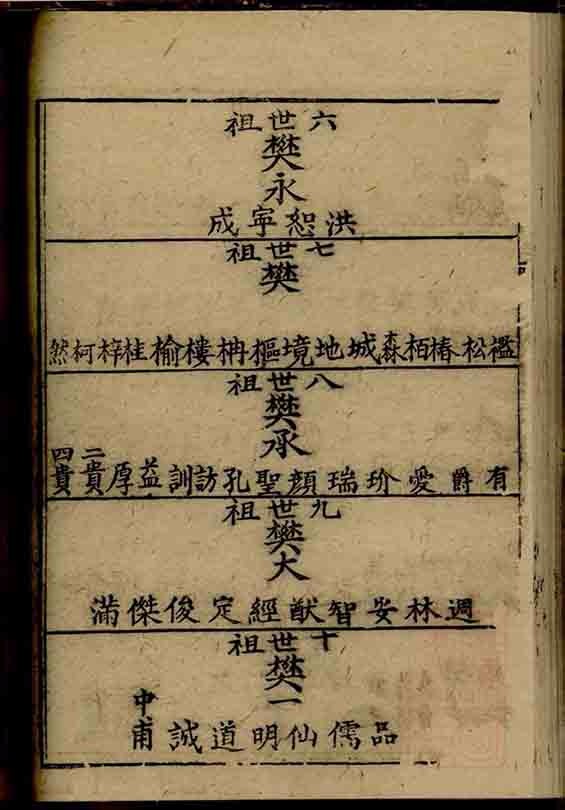 六世祖
樊永
洪恕寜成
七世祖
樊
松椿栢森城地境樞柟樓榆桂梓柯然
八世祖
樊承
有爵愛玠瑞顔聖孔訪訓益厚二貴四貴
九世祖
樊大
週林安智猷經定俊傑滿
十世祖
樊一
品儒仙明道誠中甫